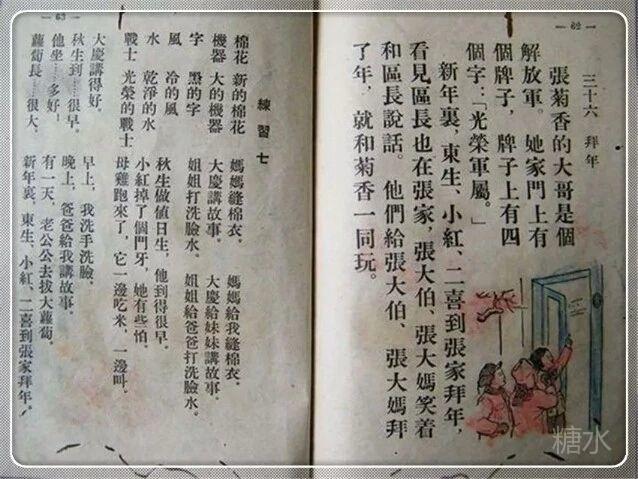 — 62 —
三十六 拜年
張菊香的大哥是個
解放軍。她家門上有
個牌子,牌子上有四
個字:「光榮軍屬。」
新年裏,東生、小紅、二喜到張家拜年,
看見區長也在張家,張大伯、張大媽笑着
和區長說話。他們給張大伯、張大媽拜
了年,就和菊香一同玩。
— 63 —
練習七
棉花 新的棉花 媽媽縫棉衣。 媽媽給我縫棉衣。
機器 大的機器 大慶講故事。 大慶給妹妹講故事。
字 黑的字 姐姐打洗臉水。 姐姐給爸爸打洗臉水。
風 冷的風 秋生做值日生,他到得很早。
水 乾淨的水 小紅掉了個門牙,她有些怕。
戰士 光榮的戰士 母雞跑來了,它一邊吃米,一邊叫。
大慶講得好。 早上,我洗手洗臉。
秋生到……很早。 晚上,爸爸給我講故事。
他坐……多好! 有一天,老公公去拔大蘿蔔。
蘿蔔長……很大。 新年裏,東生、小紅、二喜到張家拜年。
糖水